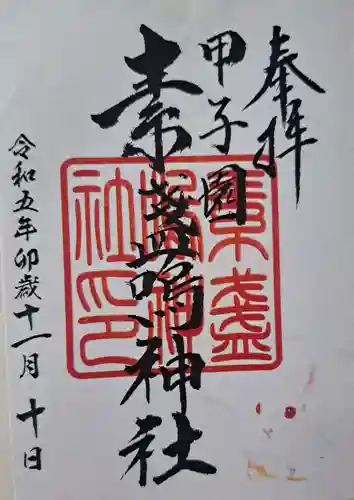 奉拝
甲子園
素盞嗚神社
令和五年卯歳十一月十日